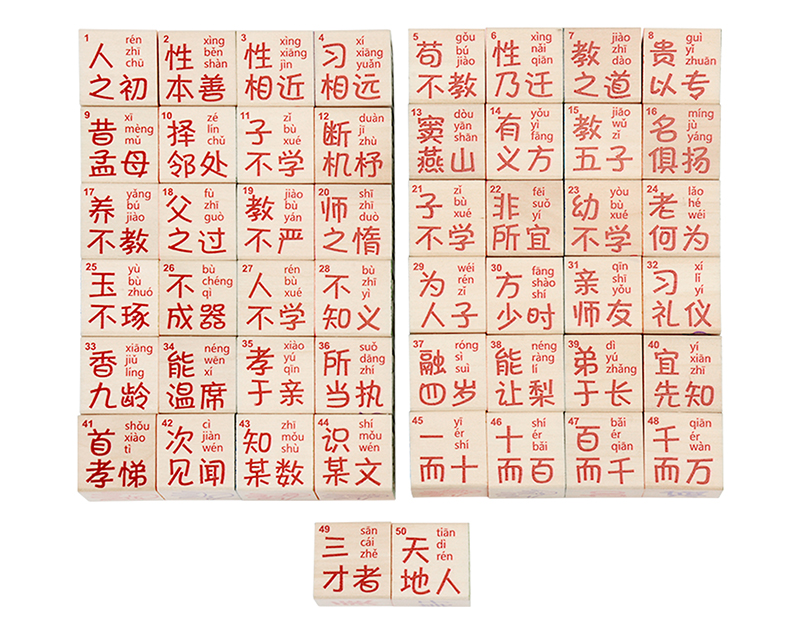 1 rén zhī chū
人之初
2 xìng běn shàn
性本善
3 xìng xiāng jìn
性相近
4 xí xiāng yuǎn
习相远
5 gǒu bú jiào
苟不教
6 xìng nǎi qiān
性乃迁
7 jiào zhī dào
教之道
8 guì yǐ zhuān
贵以专
9 xī mèng mǔ
昔孟母
10 zé lín chǔ
择邻处
11 zǐ bù xué
子不学
12 duàn jī zhù
断机杼
13 dòu yān shān
窦燕山
14 yǒu yì fāng
有义方
15 jiāo wǔ zǐ
教五子
16 míng jù yáng
名俱扬
17 yǎng bú jiào
养不教
18 fù zhī guò
父之过
19 jiào bù yán
教不严
20 shī zhī duò
师之惰
21 zǐ bù xué
子不学
22 fēi suǒ yí
非所宜
23 yòu bù xué
幼不学
24 lǎo hé wéi
老何为
25 yù bù zhuó
玉不琢
26 bù chéng qì
不成器
27 rén bù xué
人不学
28 bù zhī yì
不知义
29 wéi rén zǐ
为人子
30 fāng shào shí
方少时
31 qīn shī yǒu
亲师友
32 xí lǐ yí
习礼仪
33 xiāng jiǔ líng
香九龄
34 néng wēn xí
能温席
35 xiào yú qīn
孝于亲
36 suǒ dāng zhí
所当执
37 róng sì suì
融四岁
38 néng ràng lí
能让梨
39 dì yú zhǎng
弟于长
40 yí xiān zhī
宜先知
41 shǒu xiào tì
首孝悌
42 cì jiàn wén
次见闻
43 zhī mǒu shù
知某数
44 shí mǒu wén
识某文
45 yī ér shí
一而十
46 shí ér bǎi
十而百
47 bǎi ér qiān
百而千
48 qiān ér wàn
千而万
49 sān cái zhě
三才者
50 tiān dì rén
天地人